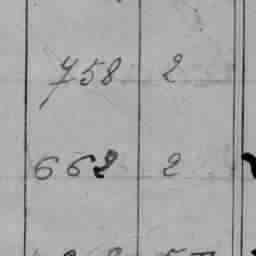 758 2
662 2